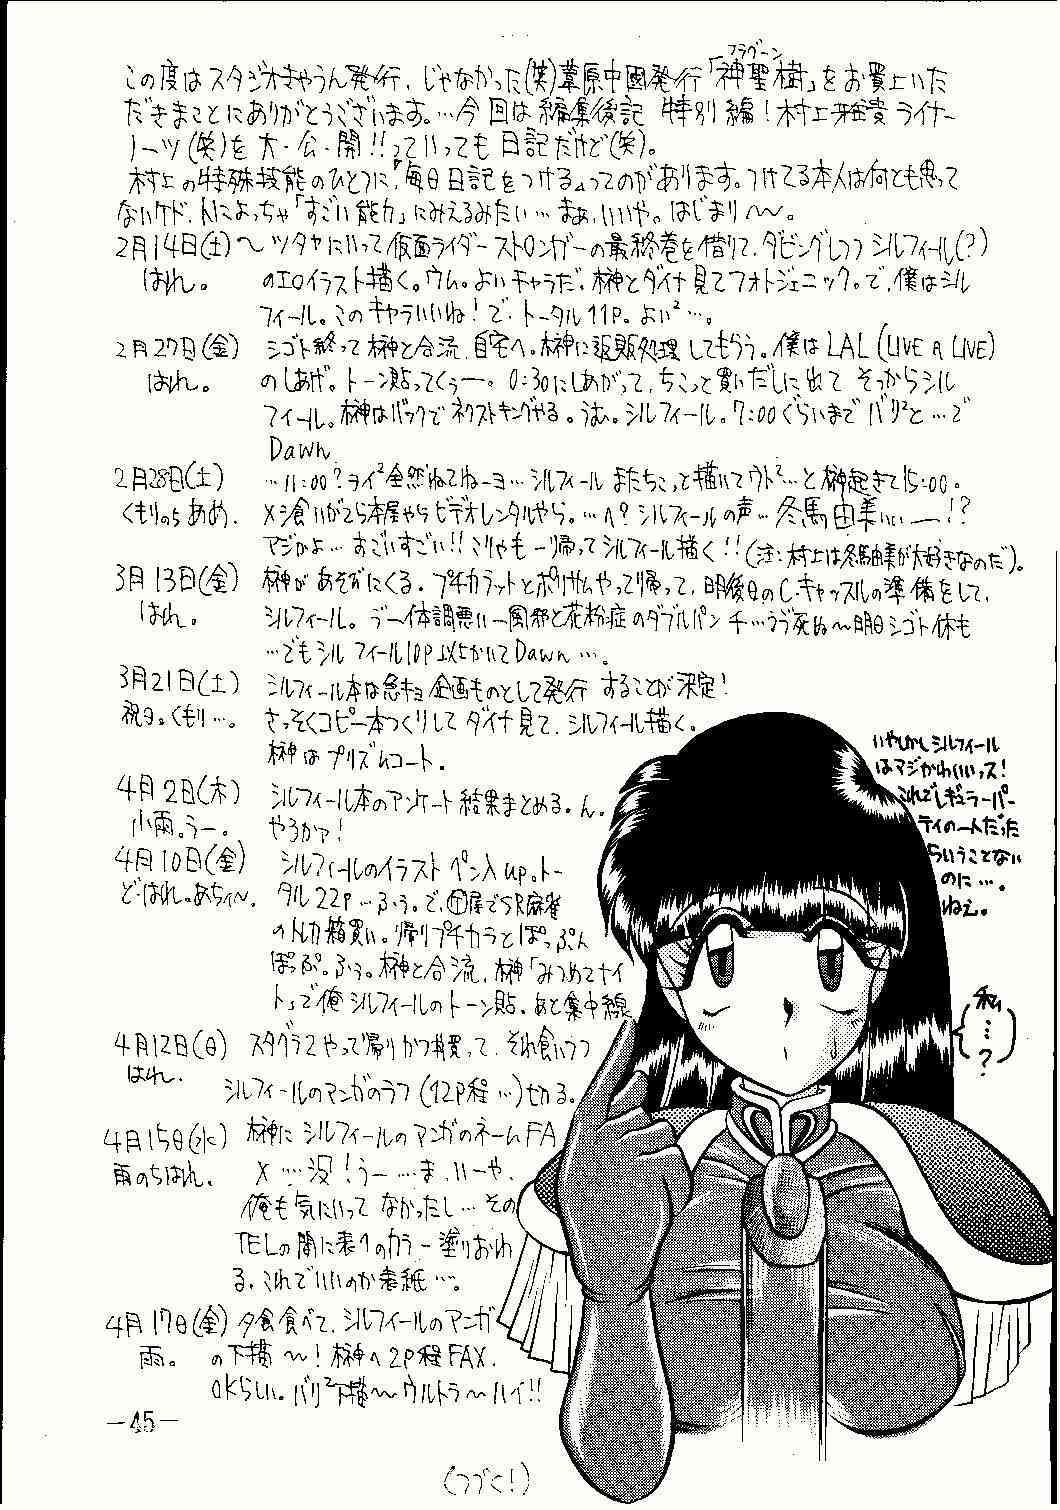 フラグーン
この度はスタジオきゃうん発行、じゃなかった(笑)葦原中國発行「神聖樹」をお買上いた
だきまことにありがとうございます。…今回は編集後記 特別編!村上雅貴ライナー
ノーツ(笑)を大・公・開!!っていっても日記だけど(笑)。
村上の特殊技能のひとつに、「毎日日記をつける」ってのがあります。つけてる本人は何とも思って
ないケド、人によっちゃ「すごい能力」にみえるみたい…まぁ、いいや。はじまり〜〜。
2月14日(土)〜 ツタヤにいって仮面ライダーストロンガーの最終巻を借りて、ダビングしつつ シルフィール(?)
はれ。 のエロイラスト描く。ウム。よいキャラだ。榊とダイナ見てフォトジェニック。で、僕はシル
フィール。このキャラいいね!で、トータル11P。よい²…。
2月27日(金) シゴト終って榊と合流、自宅へ。榊に通販処理してもらう。僕はLAL(LIVE A LIVE)
はれ。 のしあげ。トーン貼ってくぅー。0:30にしあがって、ちこっと買いだしに出て そっからシル
フィール。榊はバックでネクストキングやる。うむ。シルフィール。7:00ぐらいまでバリ²と…で
Dawn
2月28日(土) …11:00?ライ²全然ねてねーヨ…シルフィールまたちこっと描いてウト²…と榊起きて15:00。
くもりのちあめ。 メシ食いがてら本屋やらビデオレンタルやら。…へ?シルフィールの声…冬馬由美ぃぃ—!?
マジかよ…すごいすごい!!こりゃも一帰ってシルフィール描く!!(注:村上は冬馬由美が大好きなのだ)。
3月13日(金) 榊があそびにくる。プチカラットとポリサムやって帰って、明後日のC.キャッスルの準備をして、
はれ。 シルフィール。う〜体調悪い—風邪と花粉症のダブルパンチ…うう死ぬ〜明日シゴト休も
…でもシルフィール10P以上かいてDawn…。
3月21日(土) シルフィール本は急キョ企画ものとして発行することが決定!
祝日。くもり…。 さっそくコピー本つくりしてダイナ見て、シルフィール描く。
榊はプリズムコート。
4月2日(木) シルフィール本のアンケート結果まとめる。ん。
小雨。う—。 やるかァ!
4月10日(金) シルフィールのイラストペン入up。トー
ど・はれ。あちィ〜。 タル22P…ふぅ。で、屋でSR麻雀
のトレカ箱買い。帰りプチカラとぽっぷん
ぽっぷ。ふぅ。榊と合流、榊「みつめてナイ
ト」で俺シルフィールのトーン貼。あと集中線
4月12日(日) スタグラ2やって帰りかつ丼買って、それ食いつつ
はれ。 シルフィールのマンガのラフ(12P程…)切る。
4月15日(水) 榊にシルフィールのマンガのネームFA
雨のちはれ。 X…没!うー……ま、いーや、
俺も気にいってなかったし…その
TELの間に表へのカラー塗りおわ
る。これでいいのか表紙…。
4月17日(金) 夕食食べて、シルフィールのマンガ
雨。 の下描〜!榊へ2P程FAX、
OKらしい。バリ²下描〜ウルトラ〜ハイ!!
いやしかしシルフィール
はマジかわいいッス!
これでレギュラーパー
ティの一人だった
らいうことない
のに…。
ねぇ。
私
…
?
—45—
(つづく!)